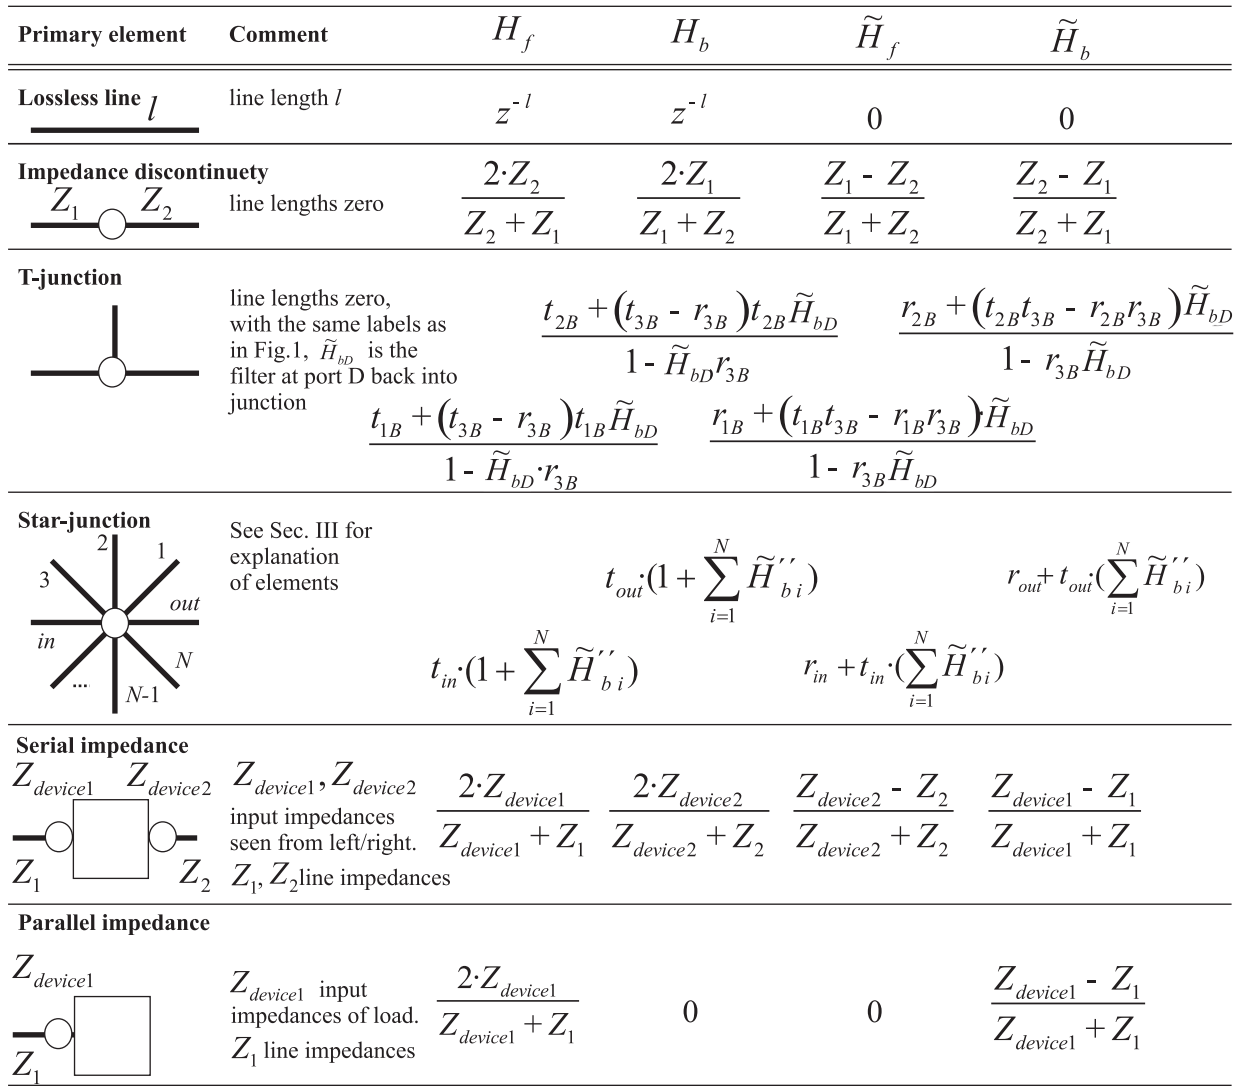 Primary element Comment H_f H_b H̃_f H̃_b
Lossless line l line length l z^{-l} z^{-l} 0 0
Impedance discontinuety
Z_1 Z_2 line lengths zero \frac{2·Z_2}{Z_2 + Z_1} \frac{2·Z_1}{Z_1 + Z_2} \frac{Z_1 - Z_2}{Z_1 + Z_2} \frac{Z_2 - Z_1}{Z_2 + Z_1}
T-junction
line lengths zero,
with the same labels as
in Fig.1, H̃_{bD} is the
filter at port D back into
junction
\frac{t_{2B} + (t_{3B} - r_{3B})t_{2B}H̃_{bD}}{1 - H̃_{bD}r_{3B}} \frac{r_{2B} + (t_{2B}t_{3B} - r_{2B}r_{3B})H̃_{bD}}{1 - r_{3B}H̃_{bD}}
\frac{t_{1B} + (t_{3B} - r_{3B})t_{1B}H̃_{bD}}{1 - H̃_{bD}·r_{3B}} \frac{r_{1B} + (t_{1B}t_{3B} - r_{1B}r_{3B})·H̃_{bD}}{1 - r_{3B}H̃_{bD}}
Star-junction
2 1
3
out
in
N
.... N-1
See Sec. III for
explanation
of elements
t_{out}·(1 + \sum_{i=1}^{N} H̃''_{bi}) r_{out} + t_{out}·(\sum_{i=1}^{N} H̃''_{bi})
t_{in}·(1 + \sum_{i=1}^{N} H̃''_{bi}) r_{in} + t_{in}·(\sum_{i=1}^{N} H̃''_{bi})
Serial impedance
Z_{device1} Z_{device2}
Z_1 Z_2
Z_{device1}, Z_{device2}
input impedances
seen from left/right.
Z_1, Z_2 line impedances
\frac{2·Z_{device1}}{Z_{device1} + Z_1} \frac{2·Z_{device2}}{Z_{device2} + Z_2} \frac{Z_{device2} - Z_2}{Z_{device2} + Z_2} \frac{Z_{device1} - Z_1}{Z_{device1} + Z_1}
Parallel impedance
Z_{device1}
Z_1
Z_{device1} input
impedances of load.
Z_1 line impedances
\frac{2·Z_{device1}}{Z_{device1} + Z_1} 0 0 \frac{Z_{device1} - Z_1}{Z_{device1} + Z_1}